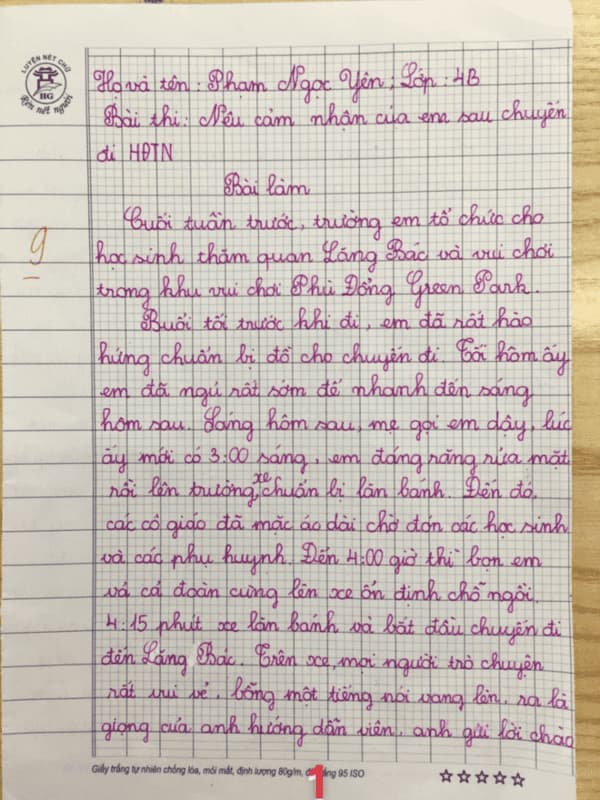 LUYỆN NÉT CHỮ
HG
Rèn nết người
Họ và tên : Phạm Ngọc Yên ; Lớp : 4B
Bài thi : Nêu cảm nhận của em sau chuyến
đi HĐTN
Bài làm
9
Cuối tuần trước, trường em tổ chức cho
học sinh thăm quan Lăng Bác và vui chơi
trong khu vui chơi Phù Đổng Green Park.
Buổi tối trước khi đi, em đã rất hào
hứng chuẩn bị đồ cho chuyến đi. Tối hôm ấy
em đã ngủ rất sớm để nhanh đến sáng
hôm sau. Sáng hôm sau, mẹ gọi em dậy, lúc
ấy mới có 3:00 sáng, em đáng răng rửa mặt
rồi lên trường, xe chuẩn bị lăn bánh. Đến đó,
các cô giáo đã mặc áo dài chờ đón các học sinh
và các phụ huynh. Đến 4:00 giờ thì bọn em
và cả đoàn cùng lên xe ổn định chỗ ngồi.
4:15 phút xe lăn bánh và bắt đầu chuyến đi
đến Lăng Bác. Trên xe, mọi người trò chuyện
rất vui vẻ, bỗng một tiếng nói vang lên, ra là
giọng của anh hướng dẫn viên, anh gửi lời chào
Giấy trắng tự nhiên chống lóa, mỏi mắt, định lượng 80g/m, độ trắng 95 ISO
1